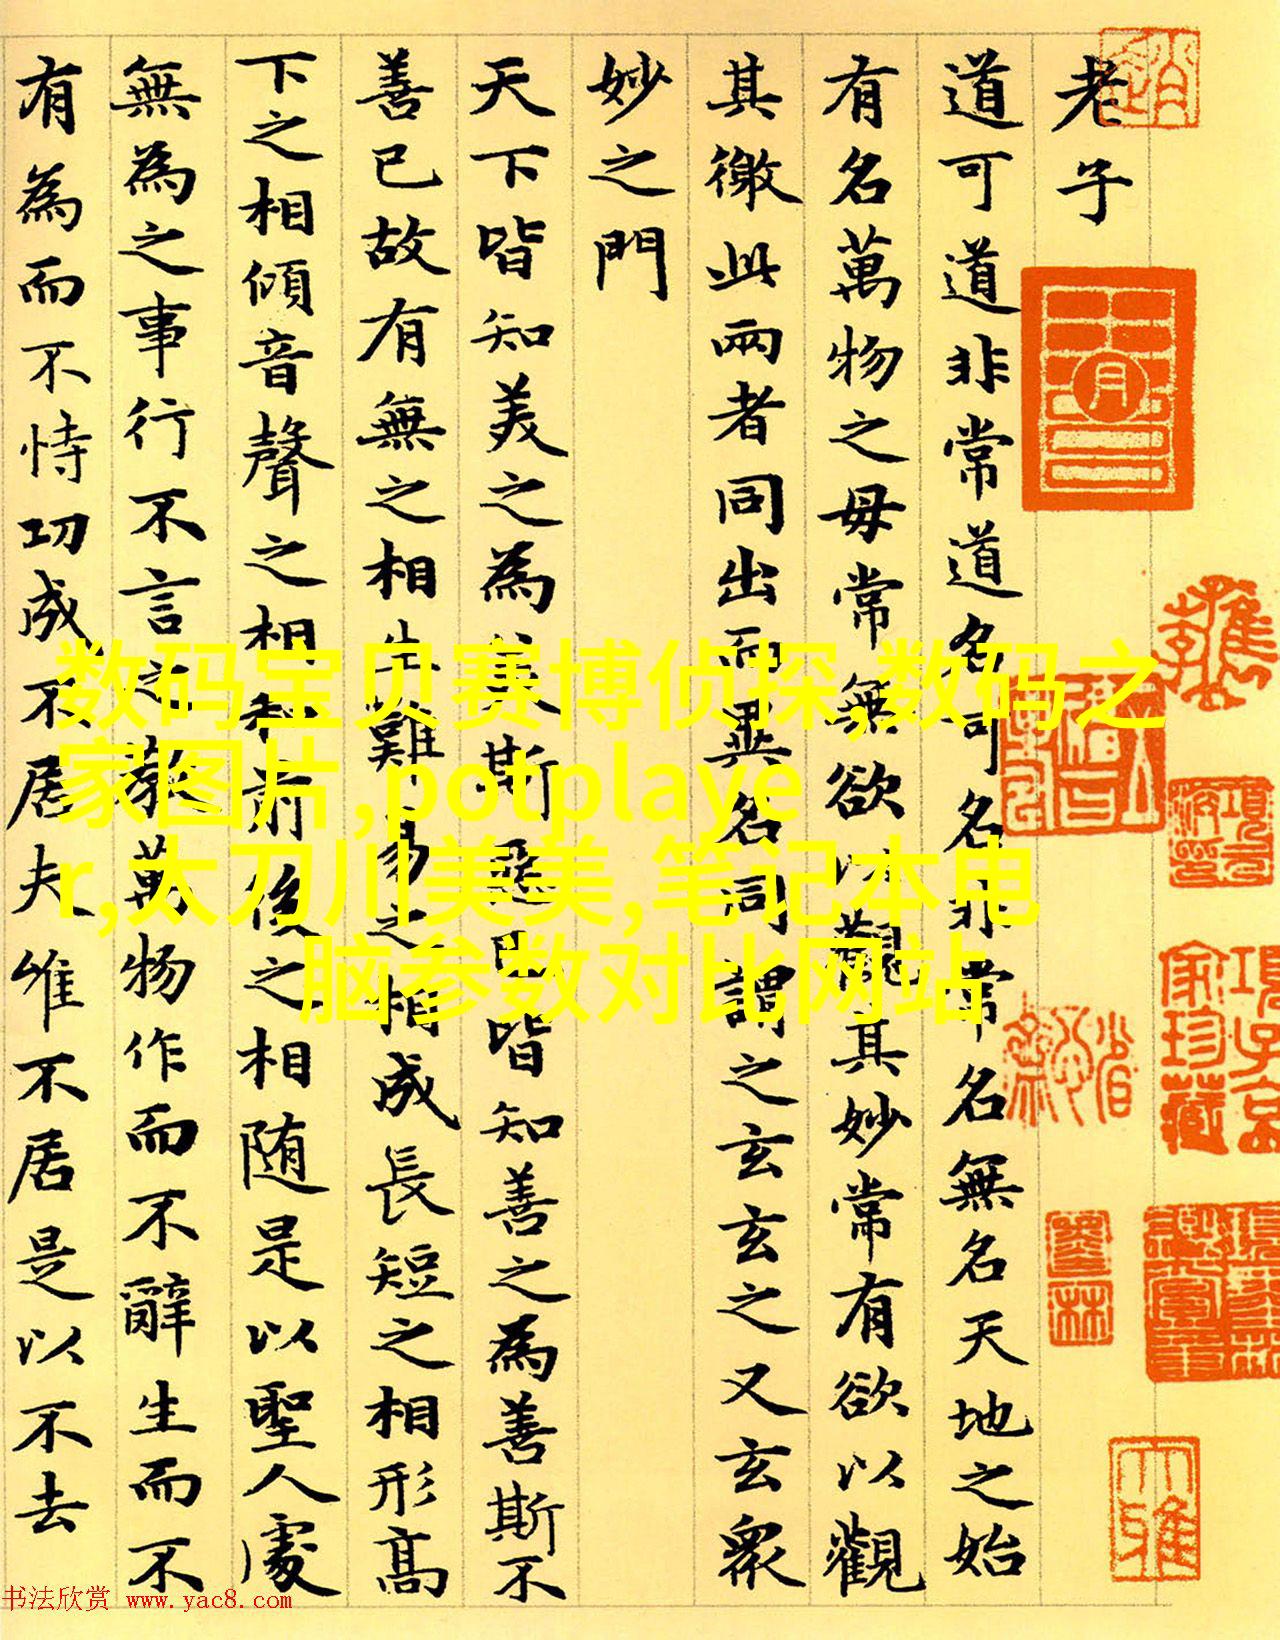 老子
道可道非常道名可名非常名無名天地之始
有名萬物之母常無欲以觀其妙常有欲以觀
其徼此兩者同出而異名同謂之玄玄之又玄眾
妙之門
天下皆知美之為美斯惡已皆知善之為善斯不
善已故有無之相生難易之相成長短之相形高
下之相傾音聲之相和前後之相随是以聖人處
無為之事行不言之教萬物作而不辭生而不
有為而不恃功成不居夫唯不居是以不去
数码宝贝赛博侦探,数码之
家图片,potplaye
r,太刀川美美,笔记本电
脑参数对比网站
項子京
家珍藏
书法欣赏 www.yac8.com